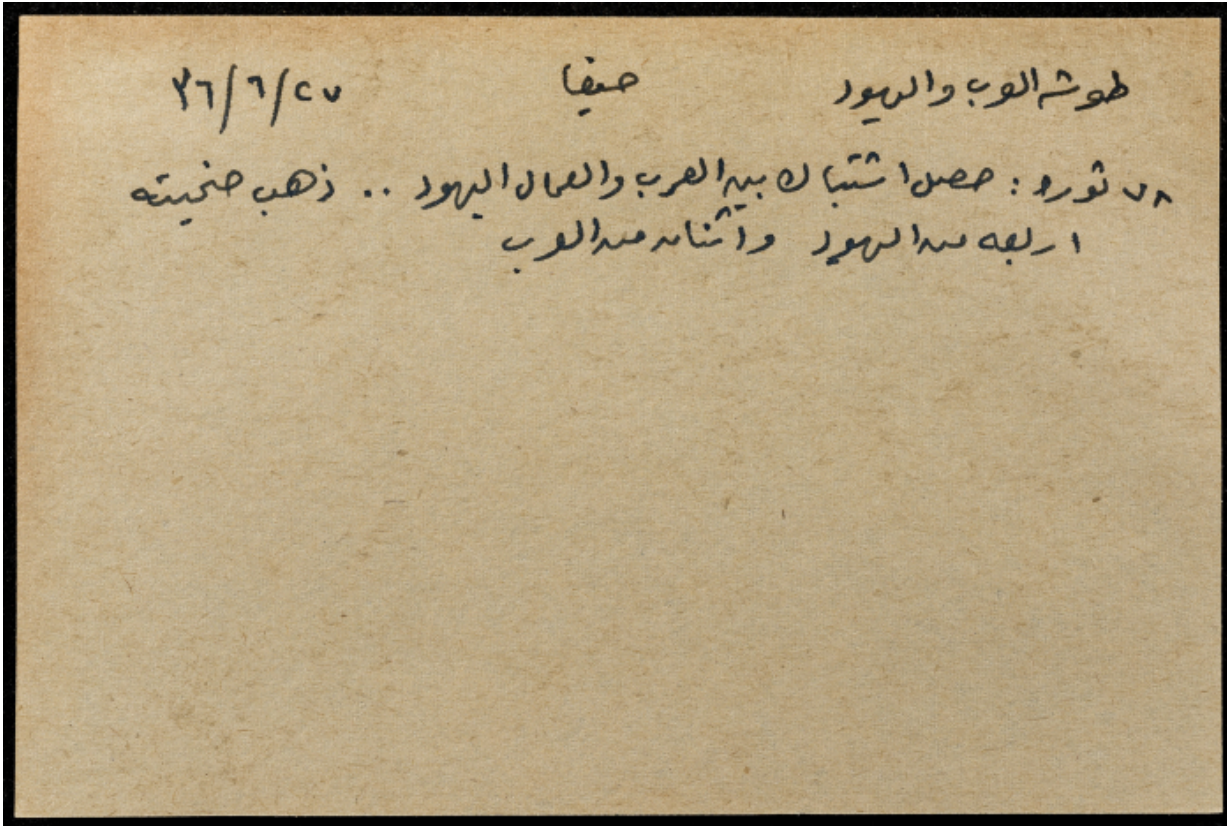 طوشه العرب واليهود حيفا ٣٦/٦/٢٧
٧٨ ثورة : حصل اشتباك بين العرب والعمال اليهود .. ذهب ضحيته
اربعه من اليهود واثنان من العرب